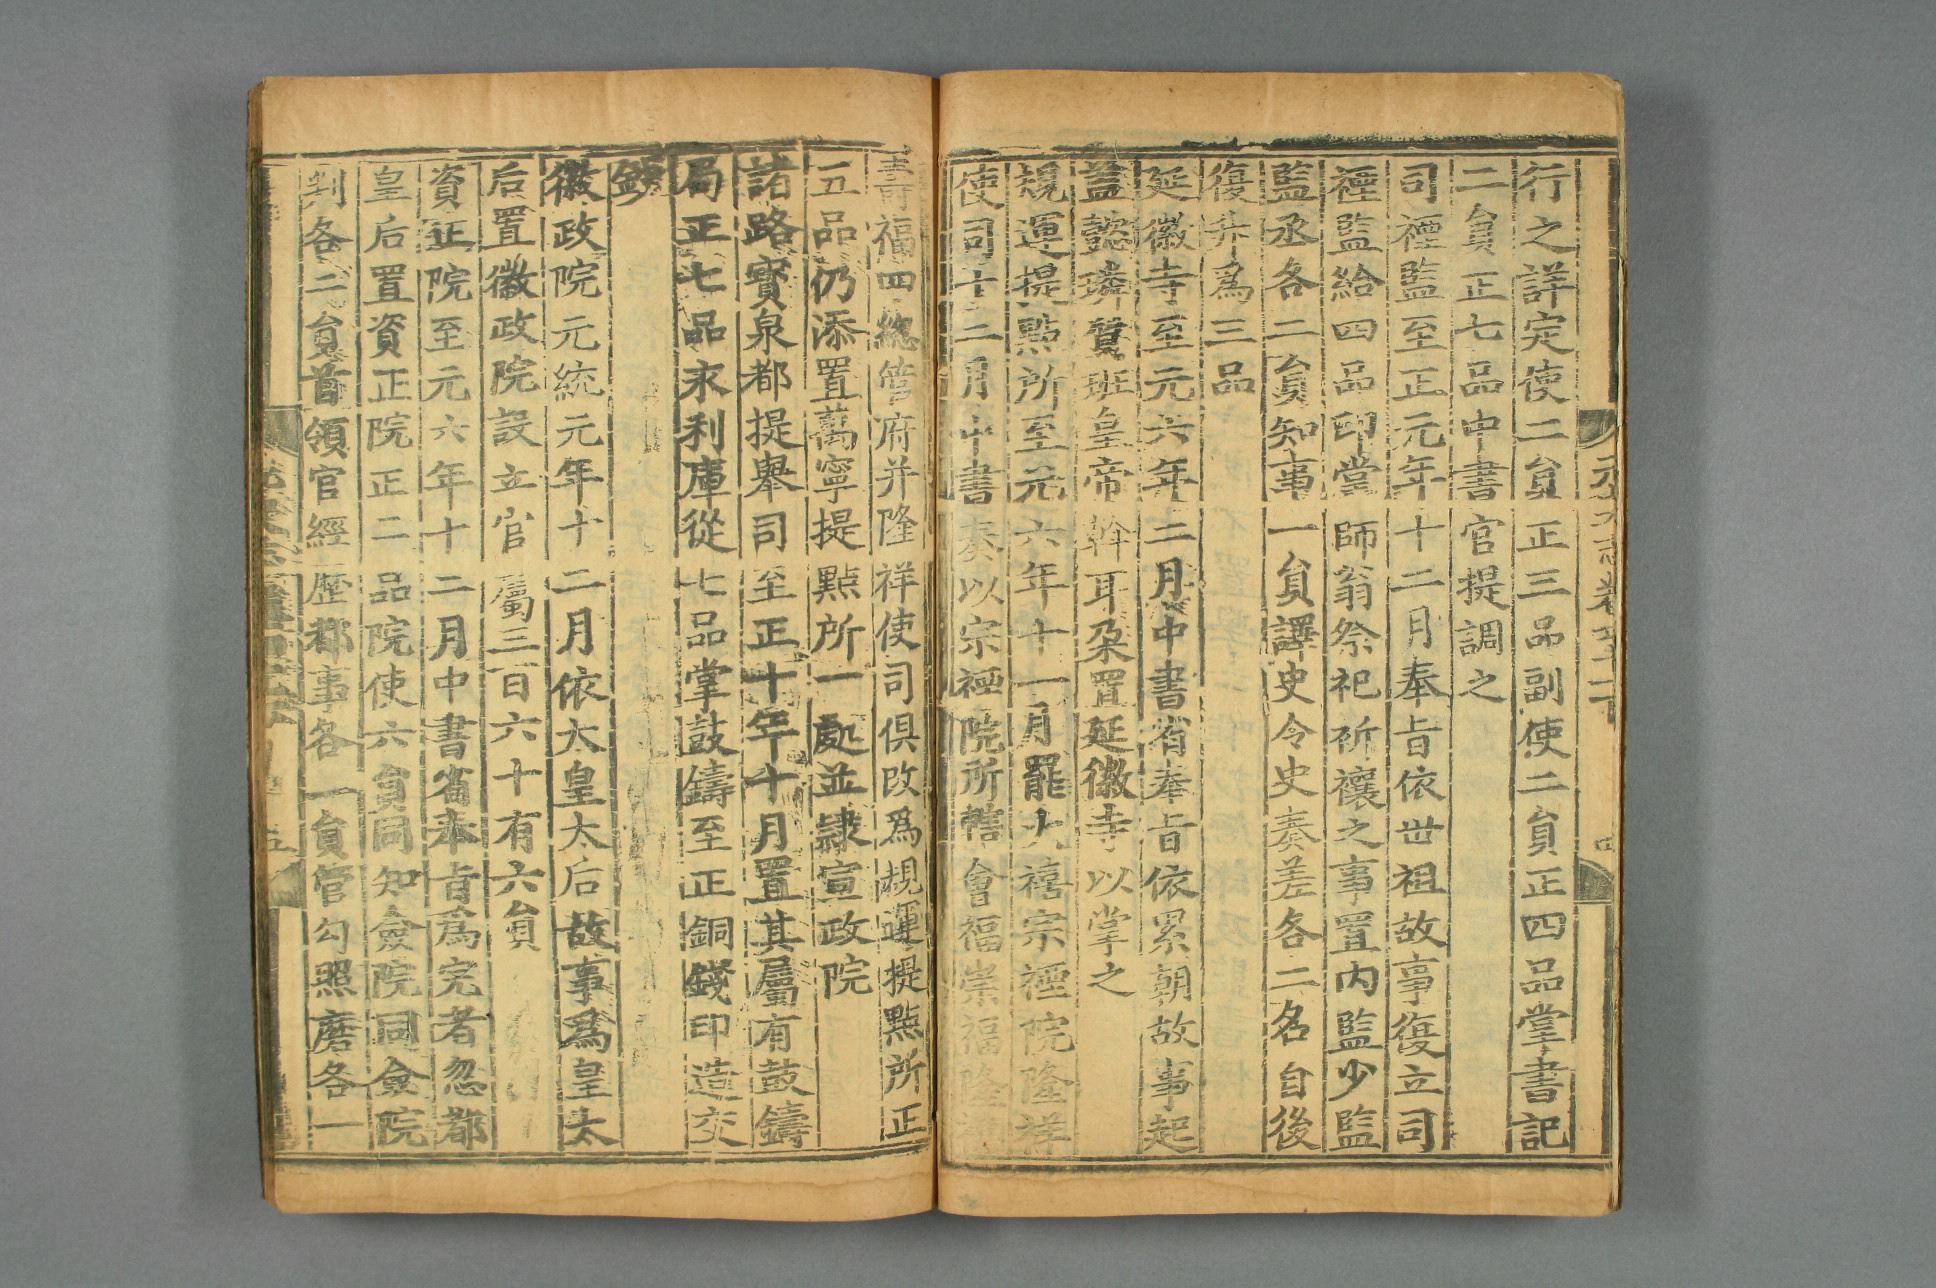 行之詳定使二貟正三品副使二貟正四品掌書記
二貟正七品中書官提調之
司禋監至正元年十二月奉旨依世祖故事復立司
禋監給四品印掌師翁祭祀祈禳之事置内監少監
監丞各二貟知事一貟譯史令史奏差各二名自後
復升爲三品
延徽寺至元六年二月中書省奉旨依累朝故事起
蓋懿璘質班皇帝斡耳朶置延徽寺以掌之
規運提點所至元六年十一月罷大禧宗禋院隆祥
使司十二月中書奏以宗禋院所轄會福崇福隆
壽福四緫管府并隆祥使司俱改爲規運提點所正
五品仍添置萬寧提點所一處並隷宣政院
諸路寳泉都提舉司至正十年十月置其屬有鼓鑄
局正七品永利庫從七品掌鼓鑄至正銅錢印造交
鈔
徽政院元統元年十二月依太皇太后故事爲皇太
后置徽政院設立官屬三百六十有六貟
資正院至元六年十二月中書省奉旨爲完者忽都
皇后置資正院正二品院使六貟同知僉院同僉院
判各二貟首領官經歷都事各一貟管勾照磨各一